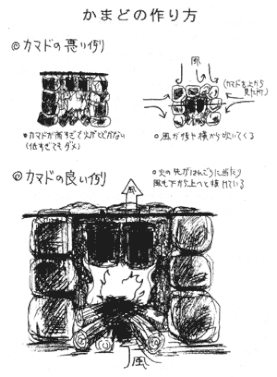 かまどの作り方
◎カマドの悪い例
風
(カマドを上から
見た所)
•カマドが高すぎて火がとどかない
(低すぎてもダメ)
•風が後や横から吹いてくる
◎カマドの良い例
•火の先がはんごうに当たり
風も下から上へと抜けている
風